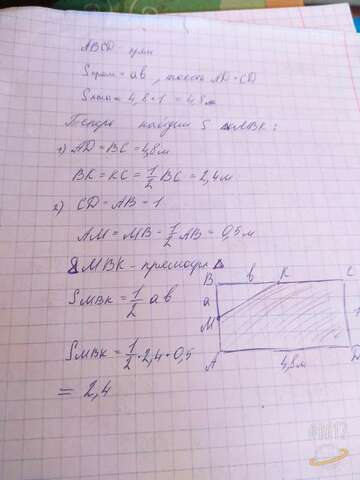 ABCD - прям
Sпрям = ab, тоесть AD · CD
Sпрям = 4,8 · 1 = 4,8 м
Теперь найдем S ΔMBK:
1) AD = BC = 4,8 м
BK = KC = 1/2 BC = 2,4 м
2) CD = AB = 1
AM = MB = 1/2 AB = 0,5 м
ΔMBK - прямоуг Δ
SMBK = 1/2 ab
SMBK = 1/2 · 2,4 · 0,5
= 2,4
B b K C
a
M 1
A 4,8 м D